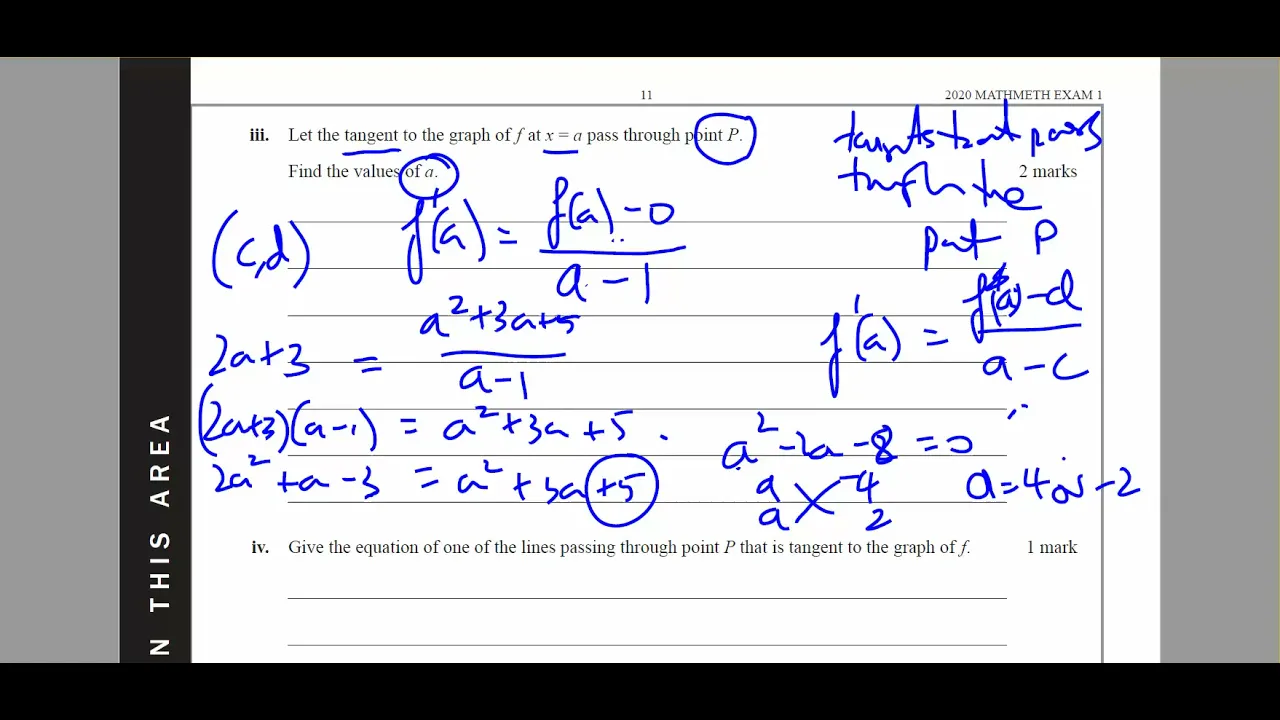 11
2020 MATHMETH EXAM 1
iii. Let the tangent to the graph of f at x = a pass through point P.
Find the values of a.
2 marks
tangents that pass
through the
point P
(c,d)
f'(a) = (f(a) - 0)/(a - 1)
f'(a) = (f(a) - d)/(a - c)
2a+3 = (a²+3a+5)/(a-1)
(2a+3)(a-1) = a²+3a+5.
2a²+a-3 = a²+3a+5
a²-2a-8=0
a -4
a 2
a=4 or -2
iv. Give the equation of one of the lines passing through point P that is tangent to the graph of f.
1 mark
N THIS AREA